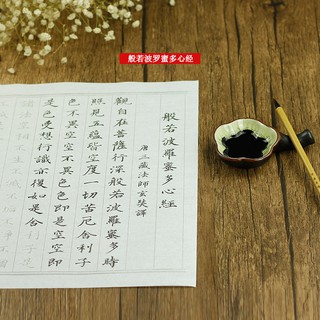 般若波罗蜜多心经
般若波羅蜜多心經
唐三藏法師玄奘譯
觀自在菩薩行深般若波羅蜜多時
照見五蘊皆空度一切苦厄舍利子
色不異空空不異色色即是空空即
是色受想行識亦復如是舍利子是
諸法空相不生不滅